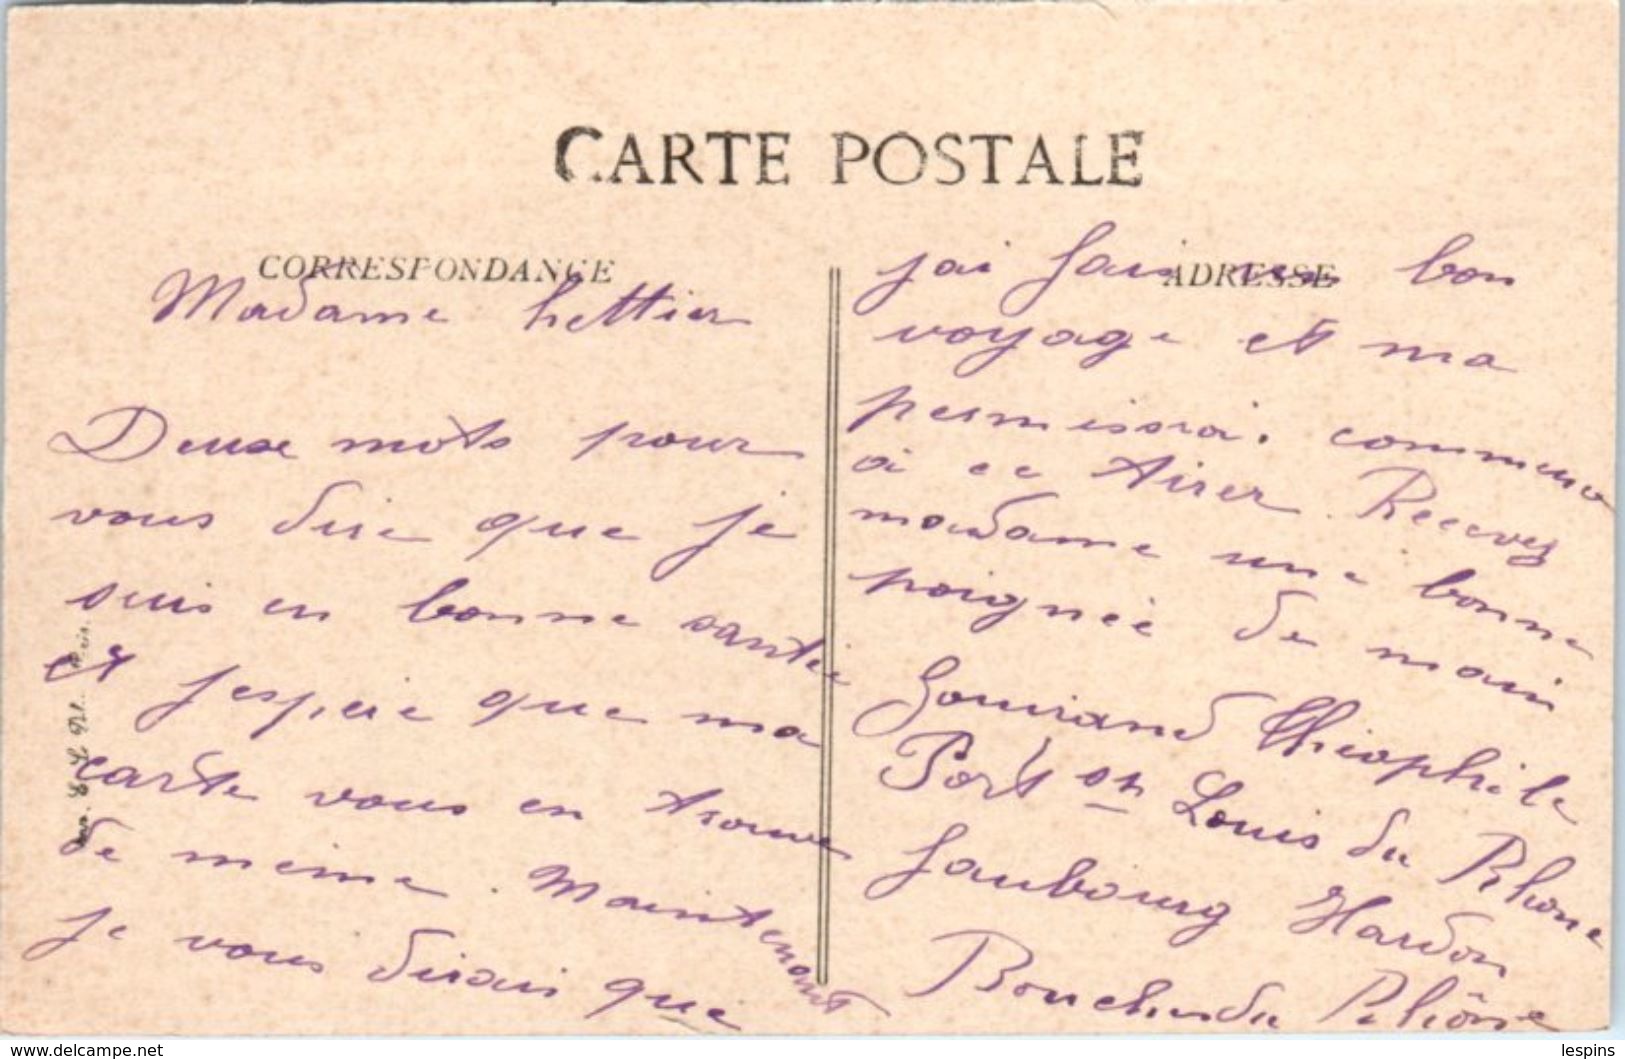 CARTE POSTALE
CORRESPONDANCE
Madame hettier
Deuxe mots pour
vous dire que je
suis en bonne santée
et jespere que ma
carte vous en trouve
de meime. Maintenant
je vous dirais que
ADRESSE
jai fais un bon
voyage et ma
permissiai. commence
a ce tirer. Recevez
madame une bonne
poignée de main
Gouirand Théophile
Port St Louis du Rhone
faubourg Hardon
Bouches du Rhône
www.delcampe.net
lespins